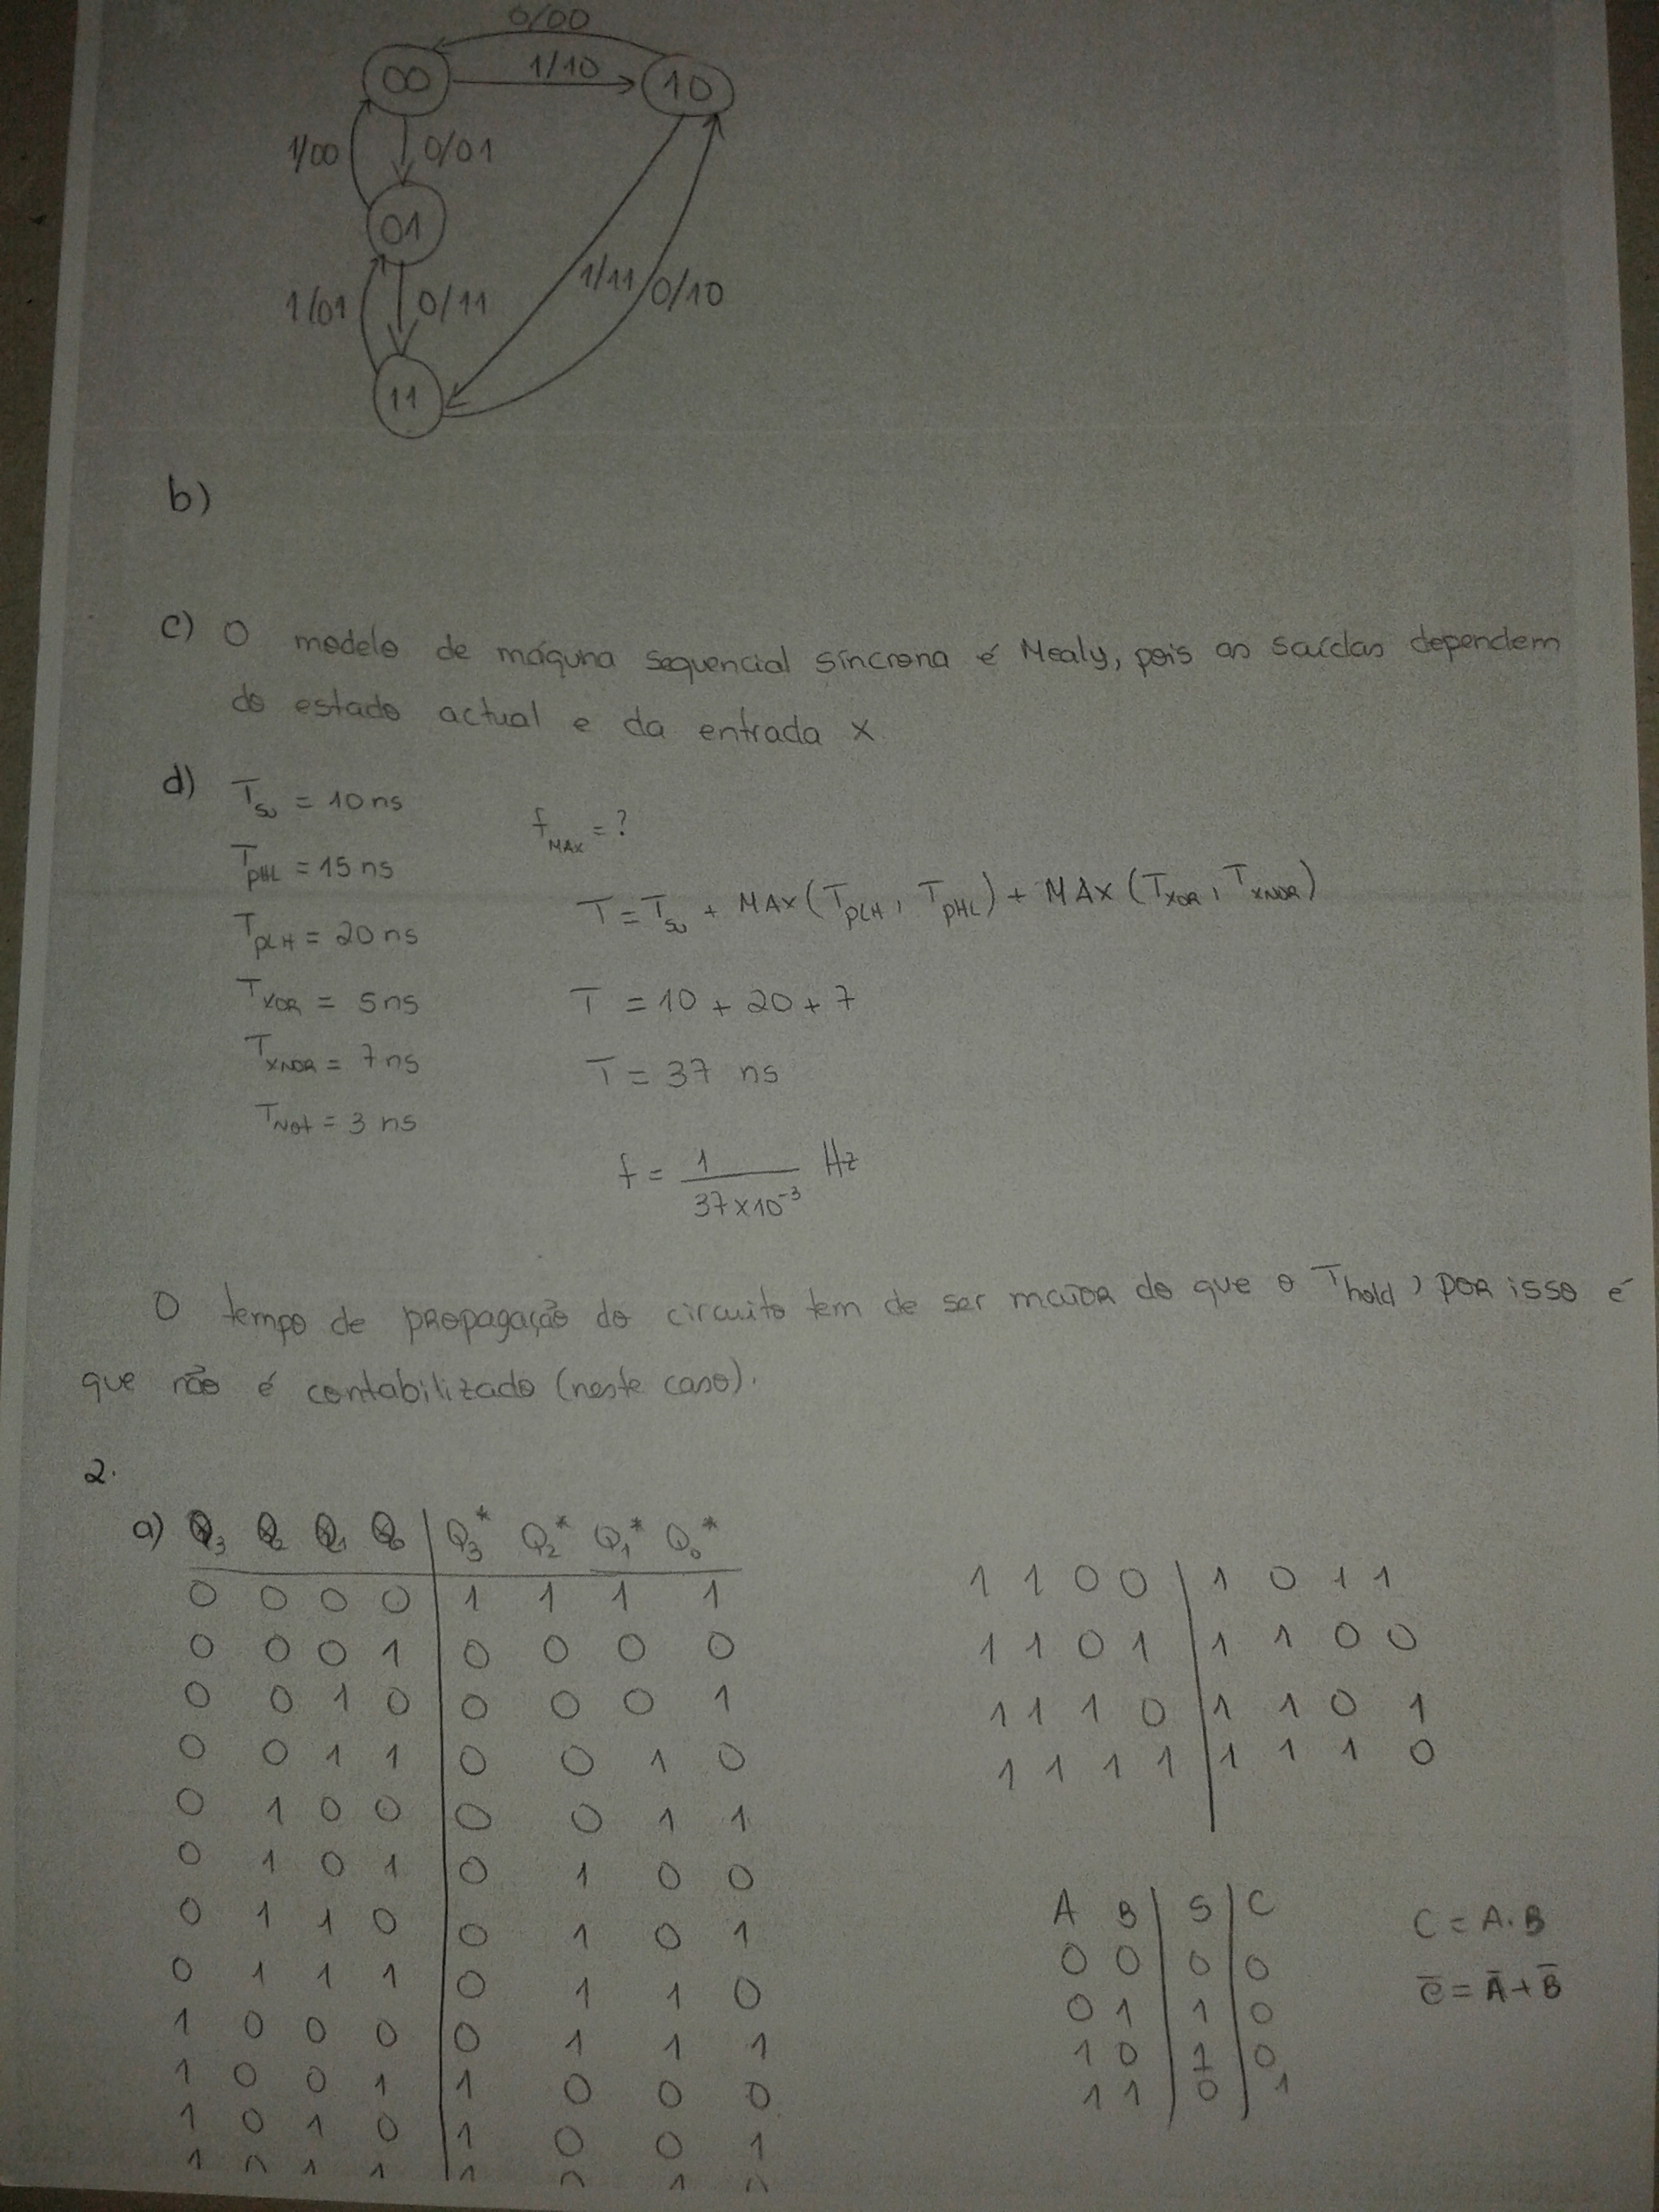 0/00
00 1/10 10
1/00 0/01
01
1/01 0/11 1/11 0/10
11
b)
c) O modelo de máquina sequencial síncrona é Mealy, pois as saídas dependem
do estado actual e da entrada X.
d) Tsu = 10 ns
fMAX = ?
TpHL = 15 ns
T = Tsu + MAX (TpLH, TpHL) + MAX (TXOR, TXNOR)
TpLH = 20 ns
TXOR = 5 ns T = 10 + 20 + 7
TXNOR = 7 ns T = 37 ns
TNot = 3 ns
f = 1 / 37×10⁻³ Hz
O tempo de propagação do circuito tem de ser maior do que o Thold, por isso é
que não é contabilizado (neste caso).
2.
a) Q3 Q2 Q1 Q0 | Q3* Q2* Q1* Q0*
0 0 0 0 | 1 1 1 1
0 0 0 1 | 0 0 0 0
0 0 1 0 | 0 0 0 1
0 0 1 1 | 0 0 1 0
0 1 0 0 | 0 0 1 1
0 1 0 1 | 0 1 0 0
0 1 1 0 | 0 1 0 1
0 1 1 1 | 0 1 1 0
1 0 0 0 | 0 1 1 1
1 0 0 1 | 1 0 0 0
1 0 1 0 | 1 0 0 1
1 0 1 1 | 1 0 1 0
1 1 0 0 | 1 0 1 1
1 1 0 1 | 1 1 0 0
1 1 1 0 | 1 1 0 1
1 1 1 1 | 1 1 1 0
A B | S | C
0 0 | 0 | 0
0 1 | 1 | 0
1 0 | 1 | 0
1 1 | 0 | 1
C = A.B
C̅ = A̅ + B̅